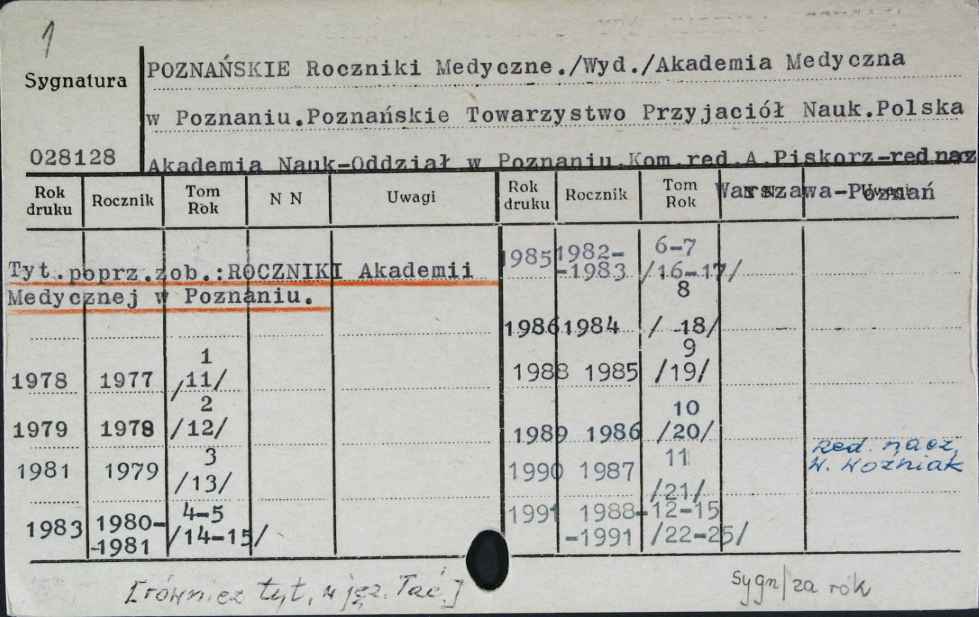 1
Sygnatura
028128
POZNAŃSKIE Roczniki Medyczne./Wyd./Akademia Medyczna
w Poznaniu.Poznańskie Towarzystwo Przyjaciół Nauk.Polska
Akademia Nauk-Oddział w Poznaniu.Kom.red.A.Piskorz-red nacz
Warszawa-Poznań
Rok druku Rocznik Tom Rok N N Uwagi
Rok druku Rocznik Tom Rok N N Uwagi
Tyt.poprz.zob.:ROCZNIKI Akademii
Medycznej w Poznaniu.
1978 1977 1 /11/
1979 1978 2 /12/
1981 1979 3 /13/
1983 1980-1981 4-5 /14-15/
1985 1982-1983 6-7 /16-17/
1986 1984 8 /18/
1988 1985 9 /19/
1989 1986 10 /20/
1990 1987 11 /21/
1991 1988-1991 12-15 /22-25/
Red. nacz.
W. Woźniak
[również tyt. w jęz. Łać.]
Sygn/za rok